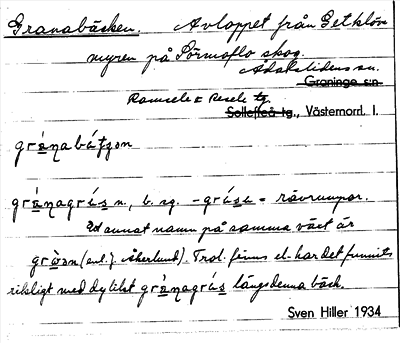 Granabäcken. Avloppet från Getklöv
myren på Sörmoflo skog.
Ådalslidens sn.
Graninge s:n
Ramsele & Resele tg.
Sollefteå tg., Västernorrl. l.
gránabátjon
gránagrás n, b. sg. -gráse = rävrumpor.
Ett annat namn på samma växt är
gròan (enl. J. Åkerlund). Trol. finns el. har det funnits
rikligt med dylikt gránagrás längs denna bäck.
Sven Hiller 1934